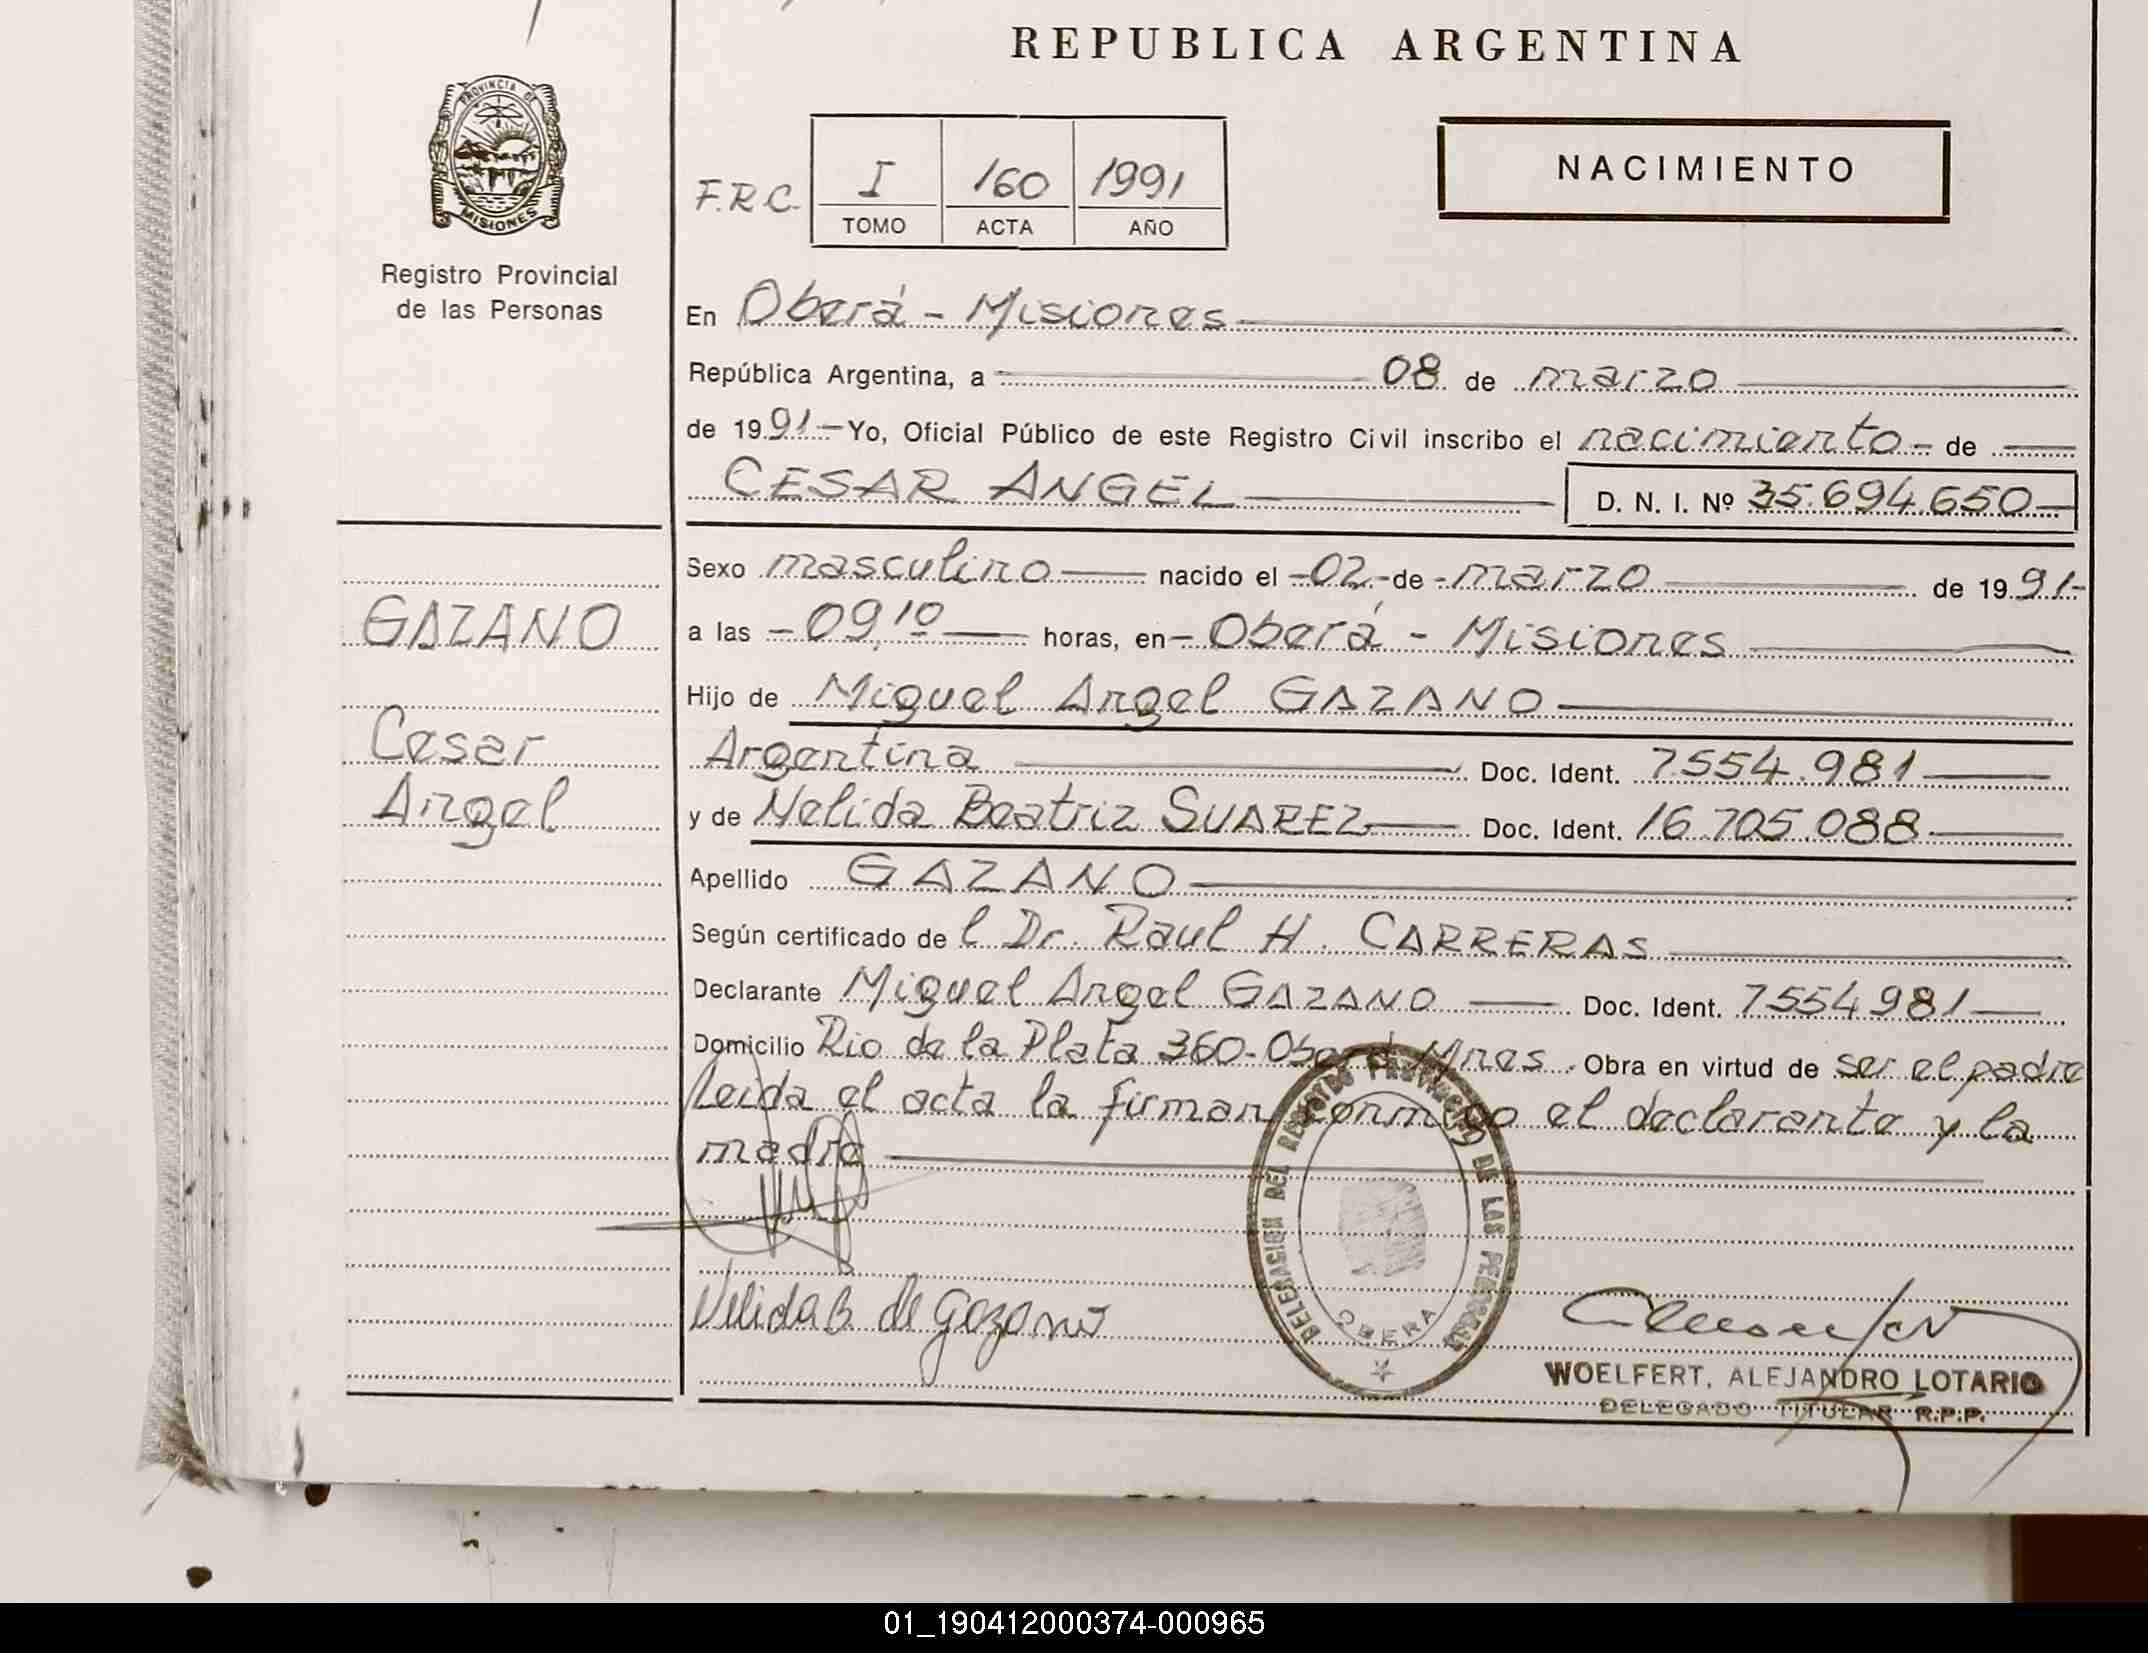 REPUBLICA ARGENTINA
PROVINCIA DE
MISIONES
Registro Provincial
de las Personas
F.R.C. I 160 1991
TOMO ACTA AÑO
NACIMIENTO
En Oberá - Misiones
República Argentina, a 08 de marzo
de 1991 - Yo, Oficial Público de este Registro Civil inscribo el nacimiento - de
CESAR ANGEL D. N. I. Nº 35.694.650
GAZANO
Cesar
Angel
Sexo masculino nacido el - 02 - de - marzo de 1991-
a las - 09,10 horas, en - Oberá - Misiones
Hijo de Miguel Angel GAZANO
Argentina Doc. Ident. 7554.981
y de Nelida Beatriz SUAREZ Doc. Ident. 16.705.088
Apellido GAZANO
Según certificado de l Dr. Raul H. CARRERAS
Declarante Miguel Angel GAZANO Doc. Ident. 7554981
Domicilio Rio de la Plata 360-Oberá Mnes. Obra en virtud de ser el padre
Leida el acta la firman conmigo el declarante y la
madre
DELEGASION DEL REGISTRO PROVINCIAL DE LAS PERSONAS
OBERA
Nelida B de Gazano
WOELFERT, ALEJANDRO LOTARIO
DELEGADO TITULAR R.P.P.
01_190412000374-000965